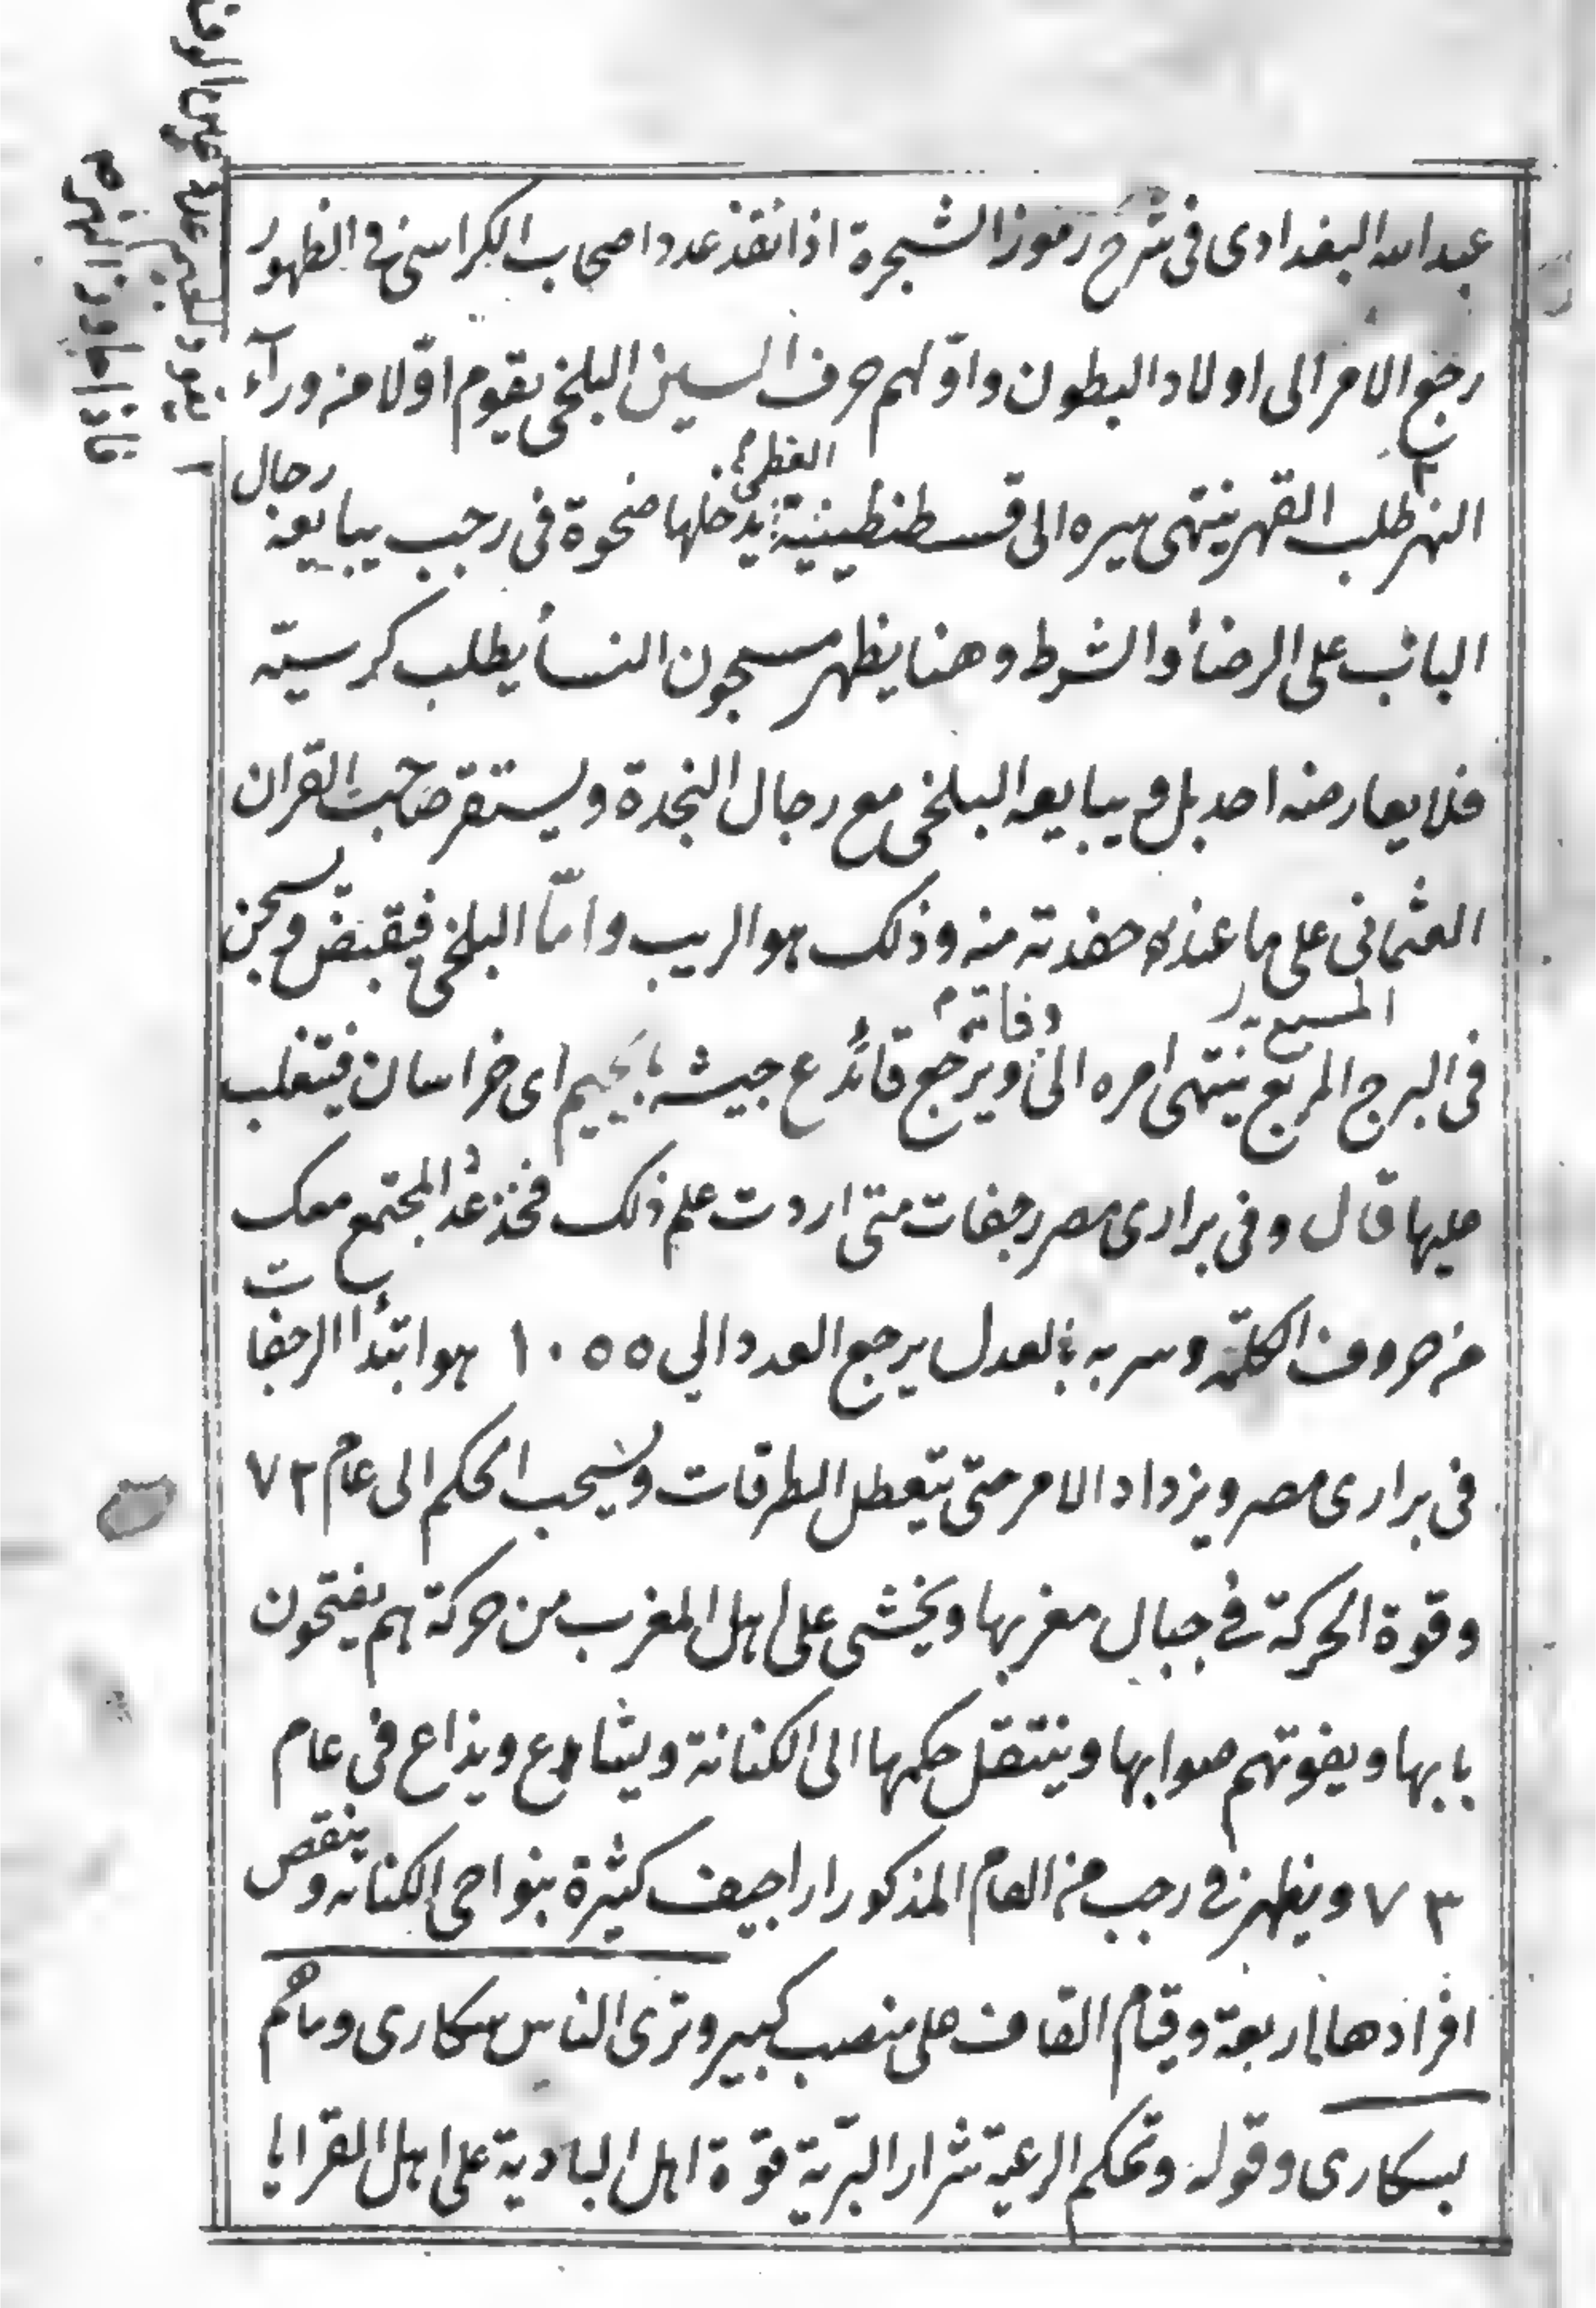 عبد الله البغدادى فى شرح رموز الشجرة اذا نفذ عدد اصحاب الكراسى فى الظهور
رجع الامر الى اولاد البطون واوّلهم حرف السين البلخى يقوم اوّلا من ورآء
النهر طلب القهر ينتهى سيره الى قسطنطينية العظمى يدخلها ضحوة فى رجب يبايعه رجال
الباب على الرضأ والشرط وهنا يظهر مسجون النسأ يطلب كرسيّه
فلا يعارضه احد بل و يبايعه البلخى مع رجال النجدة ويستقر صاحب القران
العثمانى على ما عنده حفدته منه وذلك هو الريب وامّا البلخى فيقبض ويسجن
فى البرج المربع المسبع ينتهى امره الى وفاته ويرجع قائد ع جيشه بجيم اى خراسان فيتغلب
عليها قال وفى برارى مصر رجفات متى اردت علم ذلك فخذ عدد المجتمع معك
من حروف الكلمة وسر به بالعدل يرجع العدد الي ١٠٥٥ هو ابتدأ الرجفات
فى برارى مصر ويزداد الامر حتى يتعطل الطرقات وينسحب الحكم الى عام ٧٢
وقوة الحركة فى جبال مغربها ويخشى على اهل المغرب من حركة هم يفتحون
بابها ويفوتهم صوابها وينتقل حكمها الى الكنانة ويشاع ويذاع فى عام
٧٣ ويظهر فى رجب من العام المذكور اراجيف كثيرة بنواحى الكنانه وينقص
افرادها اربعة وقيام القاف على منصب كبير وترى الناس سكارى وما هم
بسكارى وقوله وتحكم الرعية شرار البرّية قوة اهل البادية على اهل القرايا